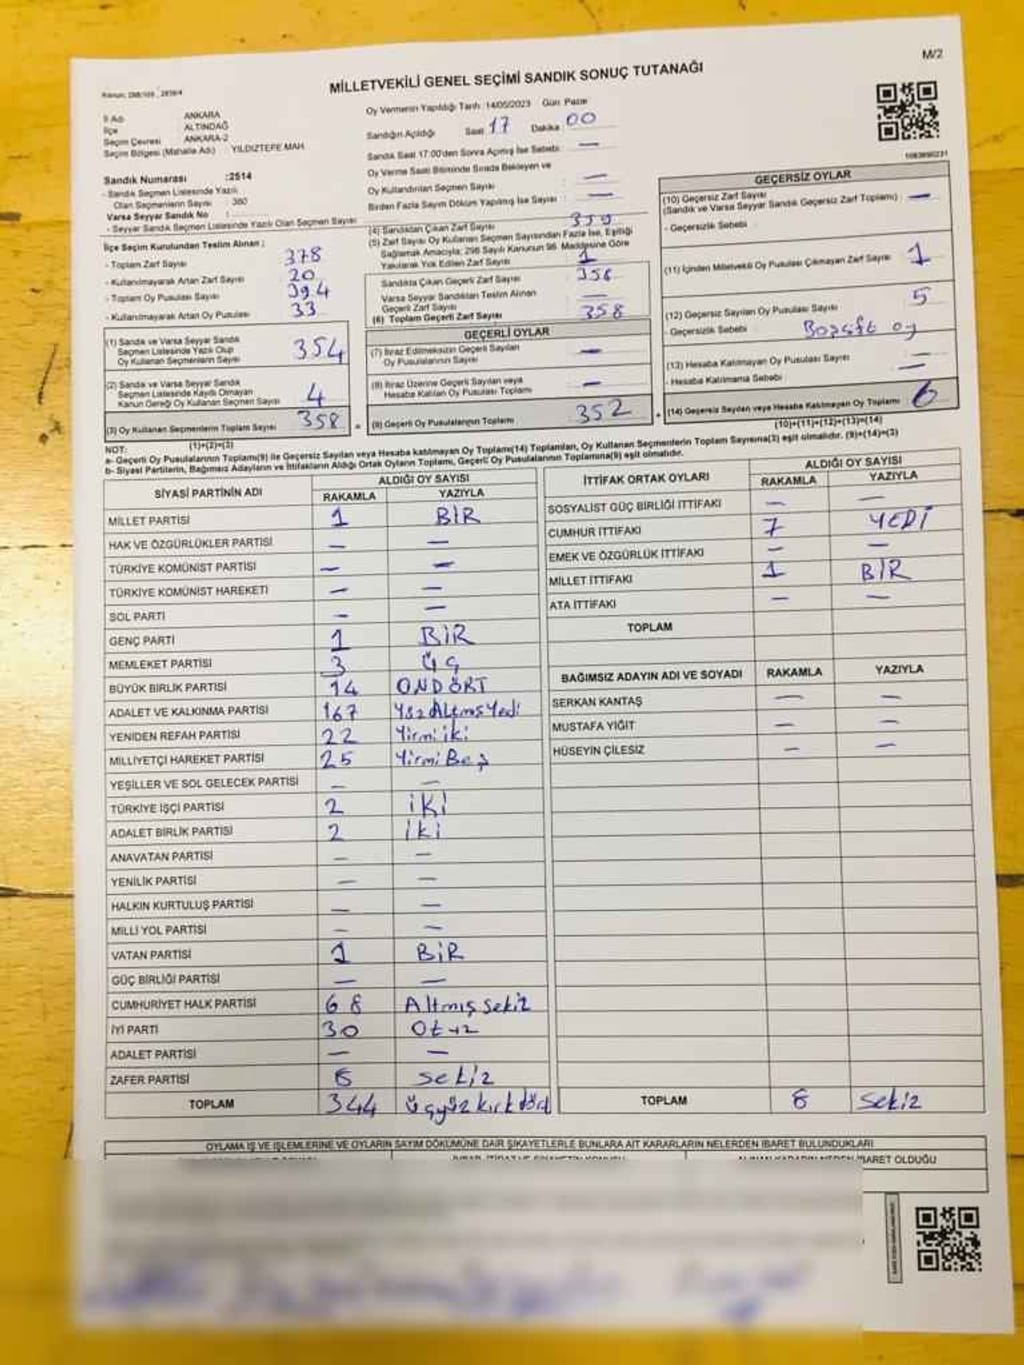 M/2
MİLLETVEKİLİ GENEL SEÇİMİ SANDIK SONUÇ TUTANAĞI
İl Adı ANKARA
İlçe ALTINDAĞ
Seçim Çevresi ANKARA-2
Seçim Bölgesi (Mahalle Adı) YILDIZTEPE MAH.
Oy Vermenin Yapıldığı Tarih :14/05/2023 Gün: Pazar
Sandığın Açıldığı Saat 17 Dakika : 00
Sandık Saat 17:00'den Sonra Açılmış İse Sebebi : —
Oy Verme Saati Bitiminde Sırada Bekleyen ve
Oy Kullandırılan Seçmen Sayısı : —
Birden Fazla Sayım Döküm Yapılmış İse Sayısı : —
Sandık Numarası :2514
- Sandık Seçmen Listesinde Yazılı
Olan Seçmenlerin Sayısı : 360
Varsa Seyyar Sandık No :
- Seyyar Sandık Seçmen Listesinde Yazılı Olan Seçmen Sayısı
İlçe Seçim Kurulundan Teslim Alınan ;
- Toplam Zarf Sayısı 378
- Kullanılmayarak Artan Zarf Sayısı 20
- Toplam Oy Pusulası Sayısı 394
- Kullanılmayarak Artan Oy Pusulası 33
(1) Sandık ve Varsa Seyyar Sandık
Seçmen Listesinde Yazılı Olup
Oy Kullanan Seçmenlerin Sayısı 354
(2) Sandık ve Varsa Seyyar Sandık
Seçmen Listesinde Kaydı Olmayan
Kanun Gereği Oy Kullanan Seçmen Sayısı 4
(3) Oy Kullanan Seçmenlerin Toplam Sayısı 358
(1)+(2)=(3)
(4) Sandıktan Çıkan Zarf Sayısı 359
(5) Zarf Sayısı Oy Kullanan Seçmen Sayısından Fazla İse, Eşitliği
Sağlamak Amacıyla; 298 Sayılı Kanunun 98. Maddesine Göre
Yakılarak Yok Edilen Zarf Sayısı 1
Sandıkta Çıkan Geçerli Zarf Sayısı 358
Varsa Seyyar Sandıktan Teslim Alınan
Geçerli Zarf Sayısı —
(6) Toplam Geçerli Zarf Sayısı 358
GEÇERLİ OYLAR
(7) İtiraz Edilmeksizin Geçerli Sayılan
Oy Pusulalarının Sayısı —
(8) İtiraz Üzerine Geçerli Sayılan veya
Hesaba Katılan Oy Pusulası Toplamı —
(9) Geçerli Oy Pusulalarının Toplamı 352
GEÇERSİZ OYLAR
(10) Geçersiz Zarf Sayısı
(Sandık ve Varsa Seyyar Sandık Geçersiz Zarf Toplamı) : —
- Geçersizlik Sebebi :
(11) İçinden Milletvekili Oy Pusulası Çıkmayan Zarf Sayısı : 1
(12) Geçersiz Sayılan Oy Pusulası Sayısı : 5
- Geçersizlik Sebebi : oy
(13) Hesaba Katılmayan Oy Pusulası Sayısı : —
- Hesaba Katılmama Sebebi : —
(14) Geçersiz Sayılan veya Hesaba Katılmayan Oy Toplamı : 6
(10)+(11)+(12)+(13)=(14)
NOT:
a- Geçerli Oy Pusulalarının Toplamı(9) ile Geçersiz Sayılan veya Hesaba katılmayan Oy Toplamı(14) Toplamları, Oy Kullanan Seçmenlerin Toplam Sayısına(3) eşit olmalıdır. (9)+(14)=(3)
b- Siyasi Partilerin, Bağımsız Adayların ve İttifakların Aldığı Ortak Oyların Toplamı, Geçerli Oy Pusulalarının Toplamına(9) eşit olmalıdır.
SİYASİ PARTİNİN ADI ALDIĞI OY SAYISI
RAKAMLA YAZIYLA
MİLLET PARTİSİ 1 BİR
HAK VE ÖZGÜRLÜKLER PARTİSİ — —
TÜRKİYE KOMÜNİST PARTİSİ — —
TÜRKİYE KOMÜNİST HAREKETİ — —
SOL PARTİ — —
GENÇ PARTİ 1 BİR
MEMLEKET PARTİSİ 3 üç
BÜYÜK BİRLİK PARTİSİ 14 ONDÖRT
ADALET VE KALKINMA PARTİSİ 167 Yüz Altmış Yedi
YENİDEN REFAH PARTİSİ 22 Yirmi iki
MİLLİYETÇİ HAREKET PARTİSİ 25 Yirmi Beş
YEŞİLLER VE SOL GELECEK PARTİSİ — —
TÜRKİYE İŞÇİ PARTİSİ 2 iKİ
ADALET BİRLİK PARTİSİ 2 iki
ANAVATAN PARTİSİ — —
YENİLİK PARTİSİ — —
HALKIN KURTULUŞ PARTİSİ — —
MİLLİ YOL PARTİSİ — —
VATAN PARTİSİ 1 BİR
GÜÇ BİRLİĞİ PARTİSİ — —
CUMHURİYET HALK PARTİSİ 68 Altmış sekiz
İYİ PARTİ 30 Otuz
ADALET PARTİSİ — —
ZAFER PARTİSİ 8 sekiz
TOPLAM 344 üçyüz kırk dört
İTTİFAK ORTAK OYLARI ALDIĞI OY SAYISI
RAKAMLA YAZIYLA
SOSYALİST GÜÇ BİRLİĞİ İTTİFAKI — —
CUMHUR İTTİFAKI 7 YEDİ
EMEK VE ÖZGÜRLÜK İTTİFAKI — —
MİLLET İTTİFAKI 1 BİR
ATA İTTİFAKI — —
TOPLAM
BAĞIMSIZ ADAYIN ADI VE SOYADI RAKAMLA YAZIYLA
SERKAN KANTAŞ — —
MUSTAFA YİĞİT — —
HÜSEYİN ÇİLESİZ — —
TOPLAM 8 Sekiz
OYLAMA İŞ VE İŞLEMLERİNE VE OYLARIN SAYIM DÖKÜMÜNE DAİR ŞİKAYETLERLE BUNLARA AİT KARARLARIN NELERDEN İBARET BULUNDUKLARI